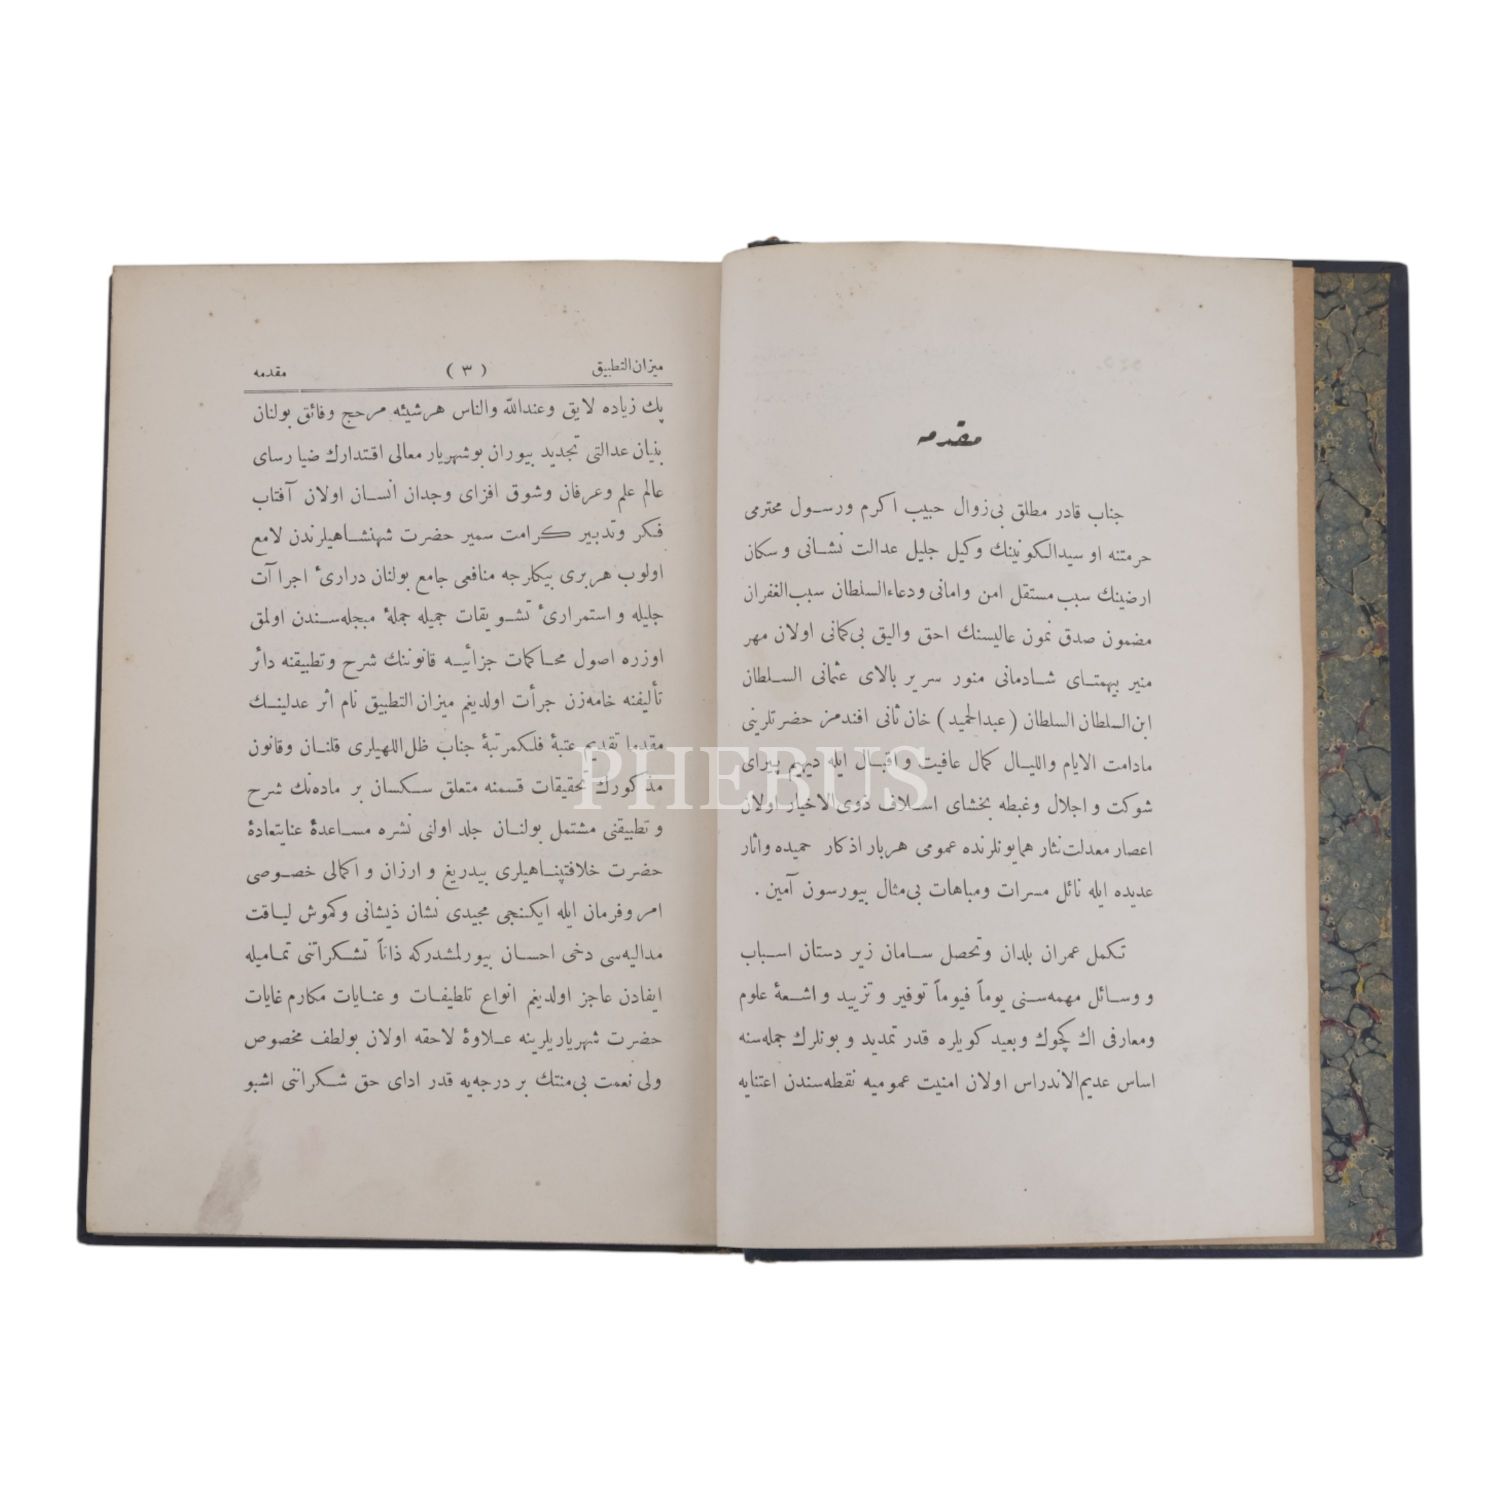 مقدمه
جناب قادر مطلق بی‌زوال حبیب اکرم ورسول محترمی
حرمتنه او سیدالکونینك وکیل جلیل عدالت نشانی و سکان
ارضینك سبب مستقل امن وامانی ودعاءالسلطان سبب‌الغفران
مضمون صدق نمون عالیسنك احق والیق بی‌کمانی اولان مهر
منیر بیهمتای شادمانی منور سریر بالای عثمانی السلطان
ابن‌السلطان السلطان (عبدالحمید) خان ثانی افندمز حضرتلرینی
مادامت الایام واللیال کمال عافیت و اقبال ایله دیهیم پیرای
شوکت و اجلال وغبطه بخشای اسلاف ذوی‌الاخیار اولان
اعصار معدلت‌نثار همایونلرنده عمومی هربار اذکار حمیده وآثار
عدیده ایله نائل مسرات ومباهات بی‌مثال بیورسون آمین .
تکمل عمران بلدان وتحصل سامان زیر دستان اسباب
و وسائل مهمه‌سنی یوماً فیوماً توفیر و تزیید و اشعهٔ علوم
ومعارفی اك کچوك وبعید کویلره قدر تمدید و بونلرك جمله‌سنه
اساس عدیم‌الاندراس اولان امنیت عمومیه نقطه‌سندن اعتنایه
میزان‌التطبیق ( ٣ ) مقدمه
پك زیاده لایق وعندالله والناس هرشیئه مرجح وفائق بولنان
بنیان عدالتی تجدید بیوران بوشهریار معالی اقتدارك ضیا رسای
عالم علم وعرفان وشوق افزای وجدان انسان اولان آفتاب
فکر وتدبیر کرامت سمیر حضرت شهنشاهیلرندن لامع
اولوب هربری بیکلرجه منافعی جامع بولنان دراریٔ اجراآت
جلیله و استمراریٔ تشویقات جمیله جملهٔ مبجله‌سندن اولمق
اوزره اصول محاکمات جزائیه قانوننك شرح وتطبیقنه دائر
تألیفنه خامه‌زن جرأت اولدیغم میزان التطبیق نام اثر عدلینك
مقدما تقدیم عتبهٔ فلکمرتبهٔ جناب ظل‌اللهیلری قلنان وقانون
مذکورك تحقیقات قسمنه متعلق سکسان بر ماده‌نك شرح
وتطبیقنی مشتمل بولنان جلد اولنی نشره مساعدهٔ عنایتعادهٔ
حضرت خلافتپناهیلری بیدریغ و ارزان و اکمالی خصوصی
امر وفرمان ایله ایکنجی مجیدی نشان ذیشانی وکموش لیاقت
مدالیه‌سی دخی احسان بیورلمشدرکه ذاتاً تشکراتنی تمامیله
ایفادن عاجز اولدیغم انواع تلطیفات و عنایات مکارم غایات
حضرت شهریاریلرینه علاوهٔ لاحقه اولان بولطف مخصوص
ولی نعمت بی‌منتك بر درجه‌یه قدر ادای حق شکراتنی اشبو
PHEBUS